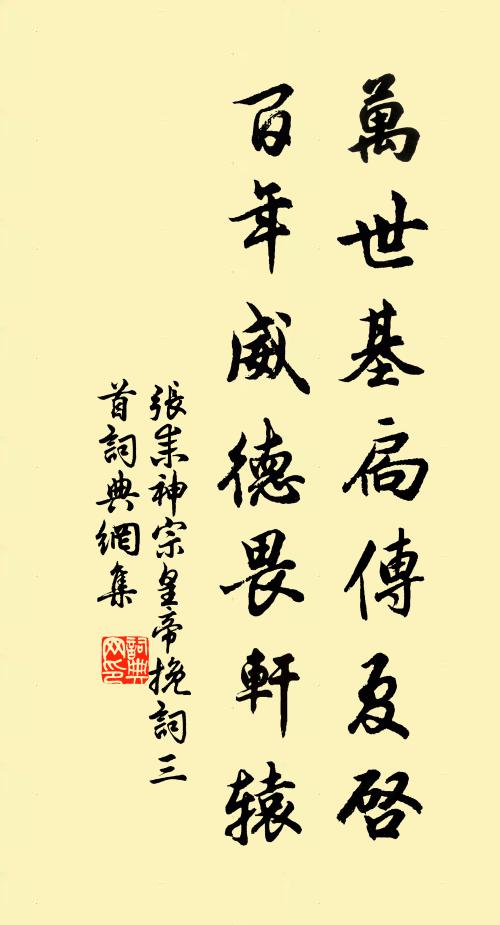 萬世基扃傳夏啓
百年威德畏軒辕
張耒神宗皇帝挽詞三
首詞典網集
詞典网印